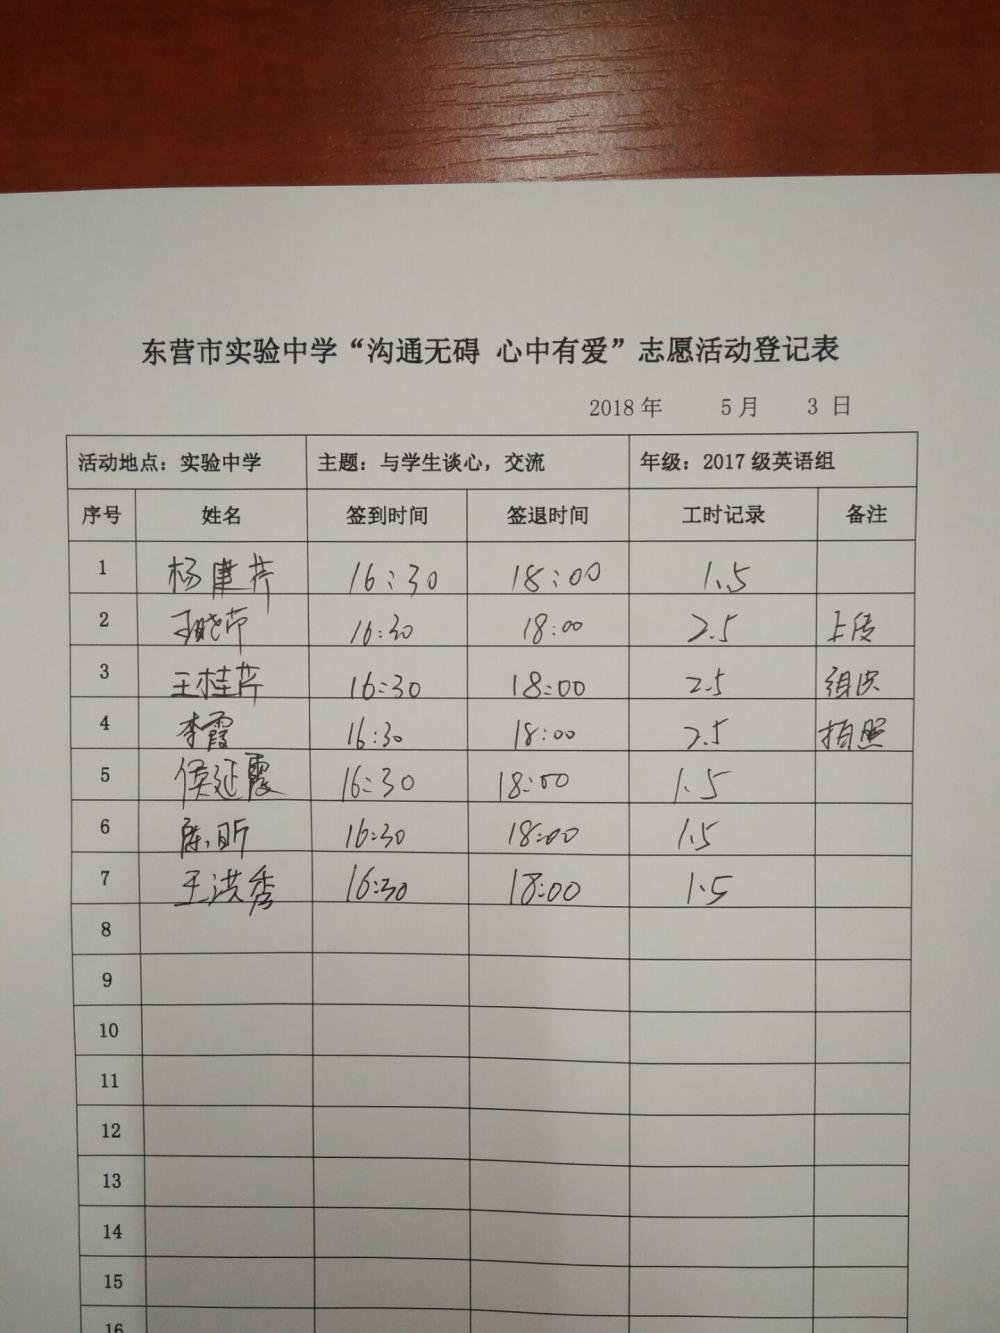 东营市实验中学“沟通无碍 心中有爱”志愿活动登记表
2018 年 5 月 3 日
活动地点：实验中学 主题：与学生谈心，交流 年级：2017 级英语组
序号 姓名 签到时间 签退时间 工时记录 备注
1 杨建芹 16:30 18:00 1.5
2 王晓芹 16:30 18:00 2.5 上传
3 王桂芹 16:30 18:00 2.5 组织
4 李霞 16:30 18:00 2.5 拍照
5 侯延霞 16:30 18:00 1.5
6 陈昕 16:30 18:00 1.5
7 王洪秀 16:30 18:00 1.5
8
9
10
11
12
13
14
15
16